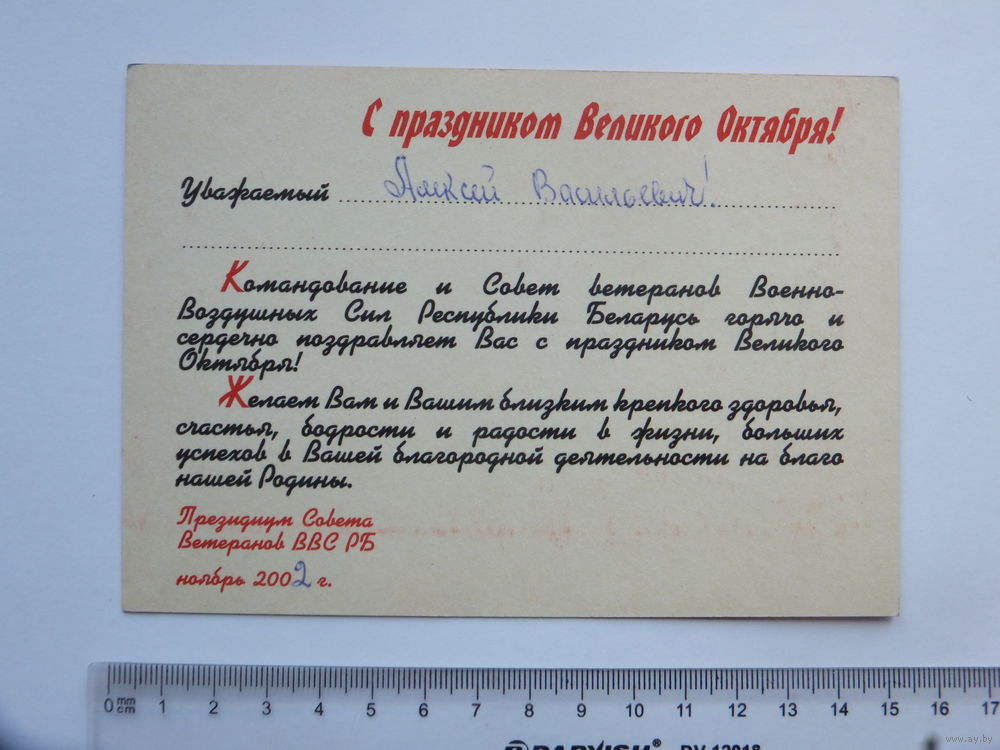 С праздником Великого Октября!
Уважаемый Алексей Васильевич!
Командование и Совет ветеранов Военно-
Воздушных Сил Республики Беларусь горячо и
сердечно поздравляет Вас с праздником Великого
Октября!
Желаем Вам и Вашим близким крепкого здоровья,
счастья, бодрости и радости в жизни, больших
успехов в Вашей благородной деятельности на благо
нашей Родины.
Президиум Совета
Ветеранов ВВС РБ
ноябрь 2002 г.
0 mm cm 1 2 3 4 5 6 7 8 9 10 11 12 13 14 15 16 17
DV-12018
www.ay.by